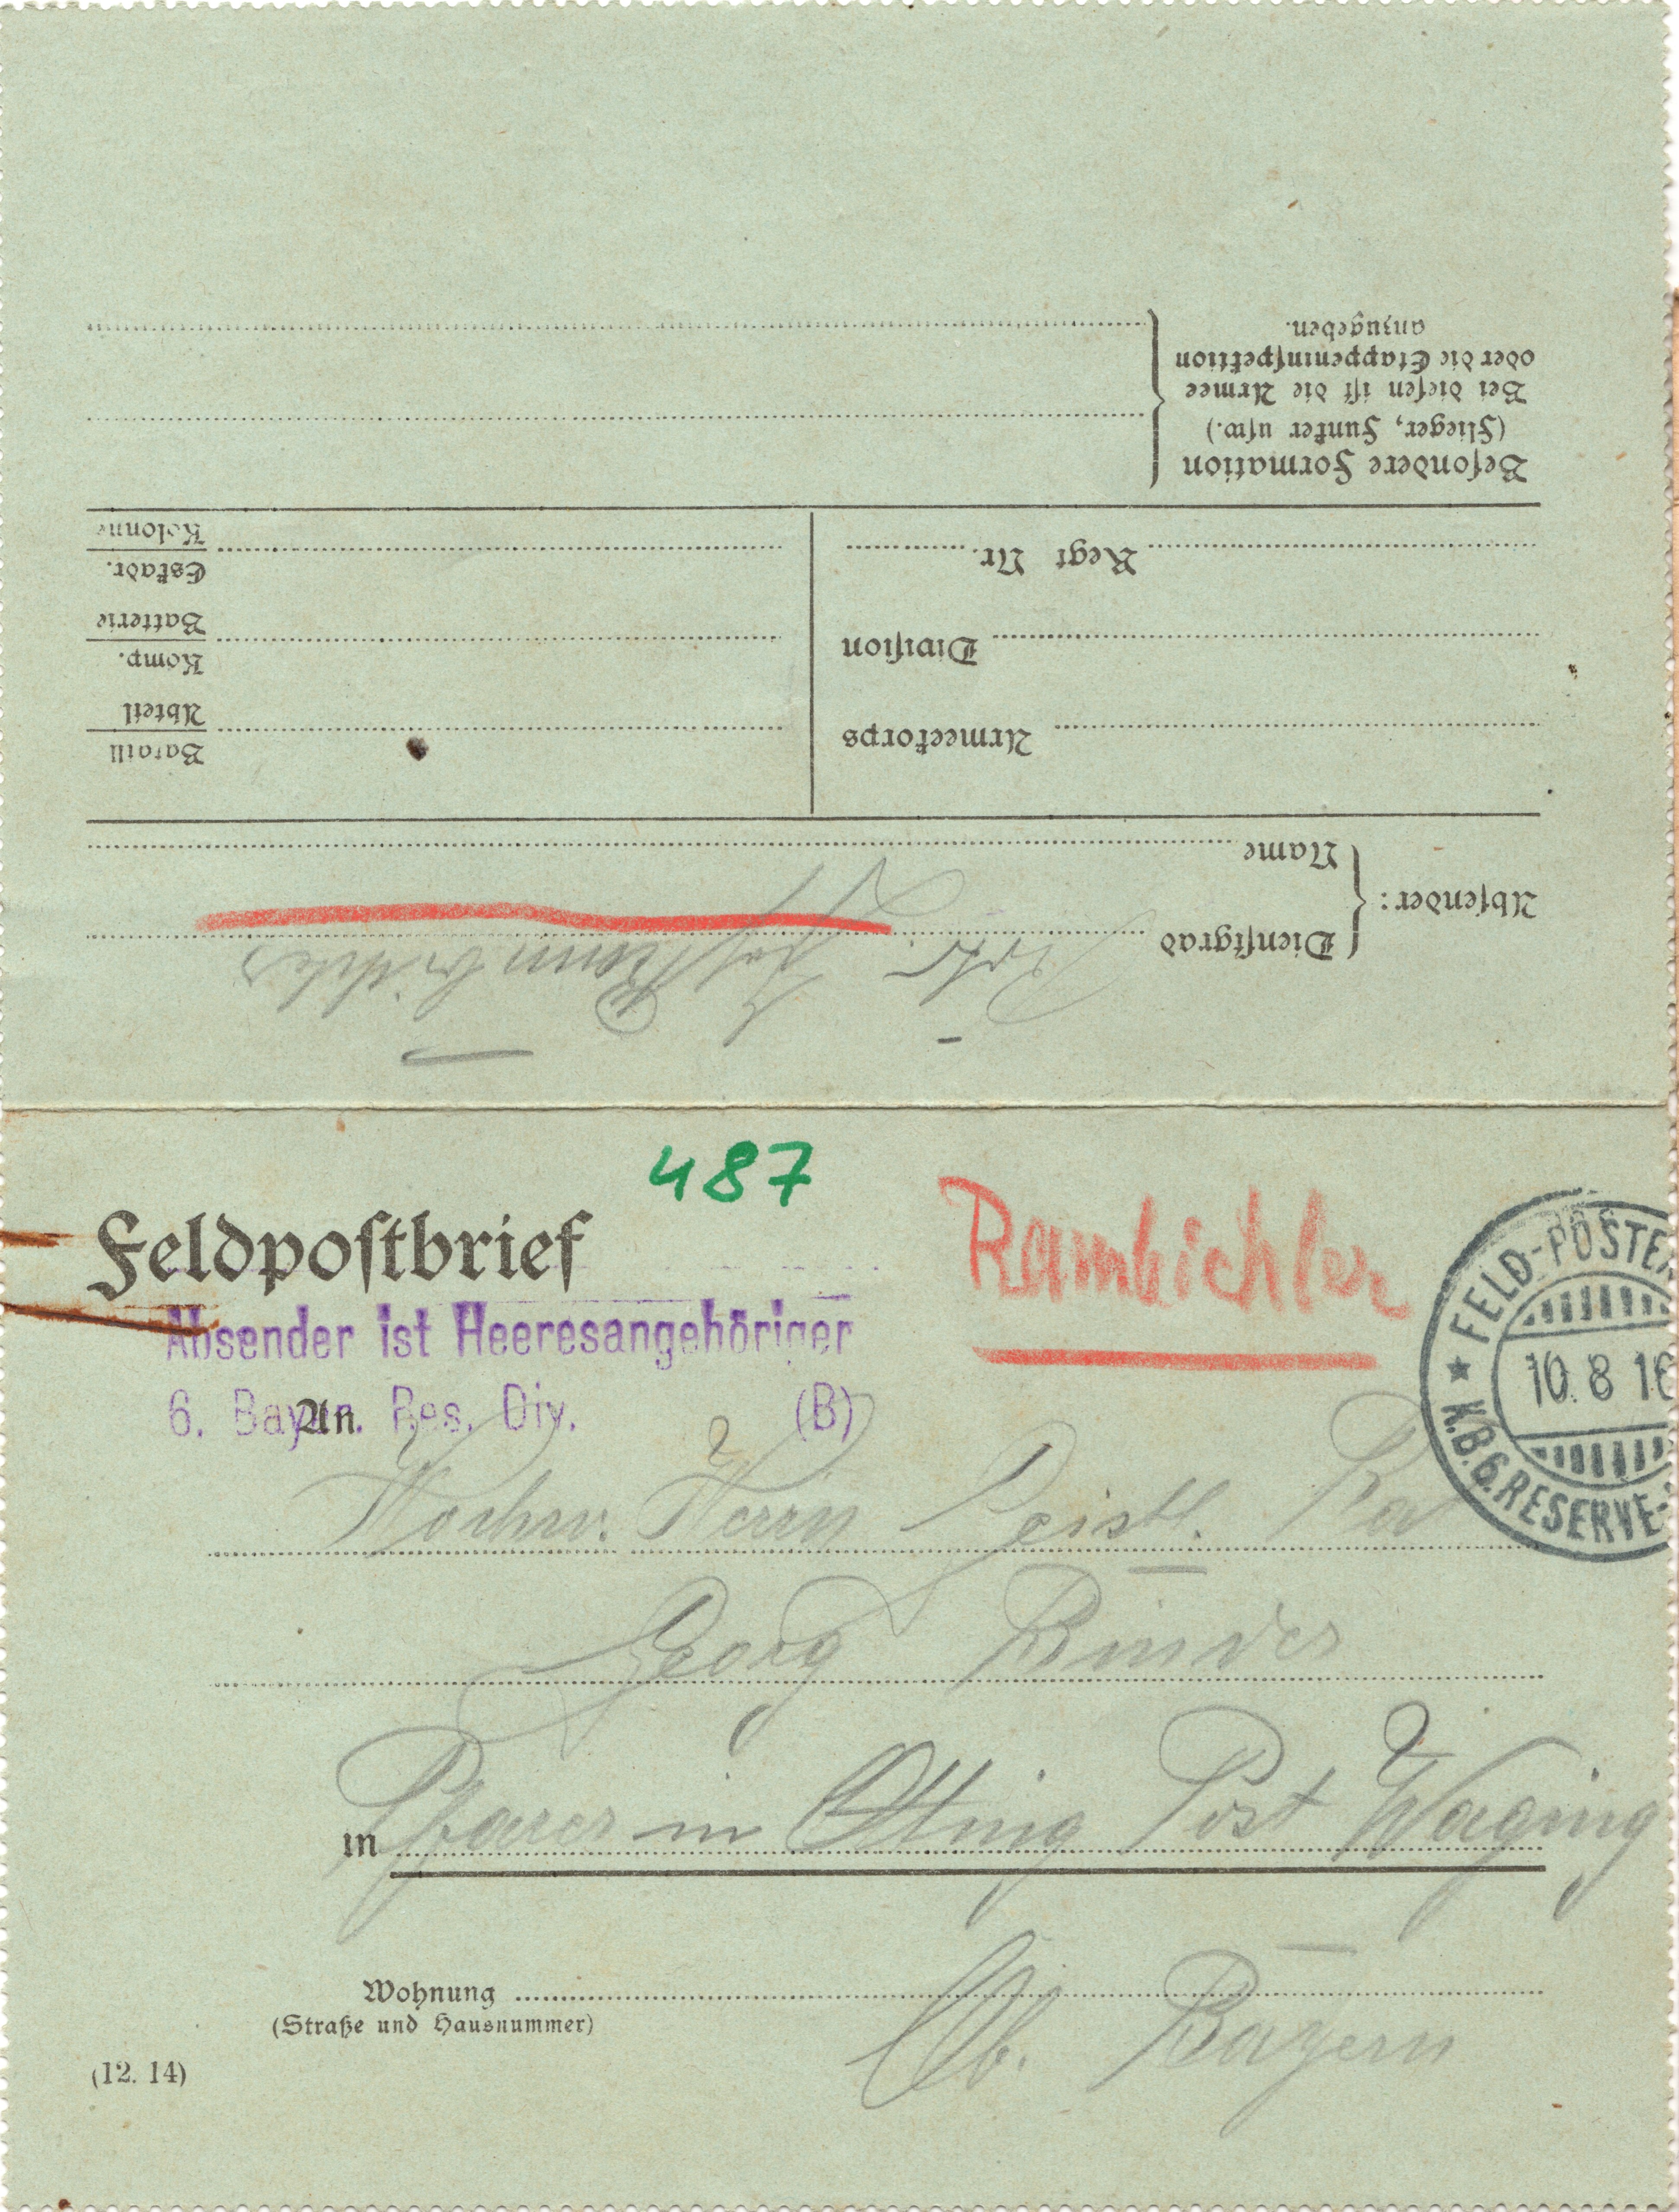 487
Rambichler
Feldpostbrief
FELD-POSTEX
Absender ist Heeresangehöriger
10. 8 16
6. Bayer. Res. Div. (B)
K.B.6.RESERVE-
An
Hochw. Herrn Geistl. Rat
Georg Binder
in Pfarrer in Otting Post Waging
Wohnung
Ob. Bayern
(Straße und Hausnummer)
(12. 14)
Absender:
Dienstgrad
Jos. Rambichler
Name
Armeekorps
Division
Regt Nr.
Bataill
Abteil
Komp.
Batterie
Eskadr.
Kolonne
Besondere Formation
(Flieger, Funker usw.)
Bei diesen ist die Armee
oder die Etappeninspektion
anzugeben.